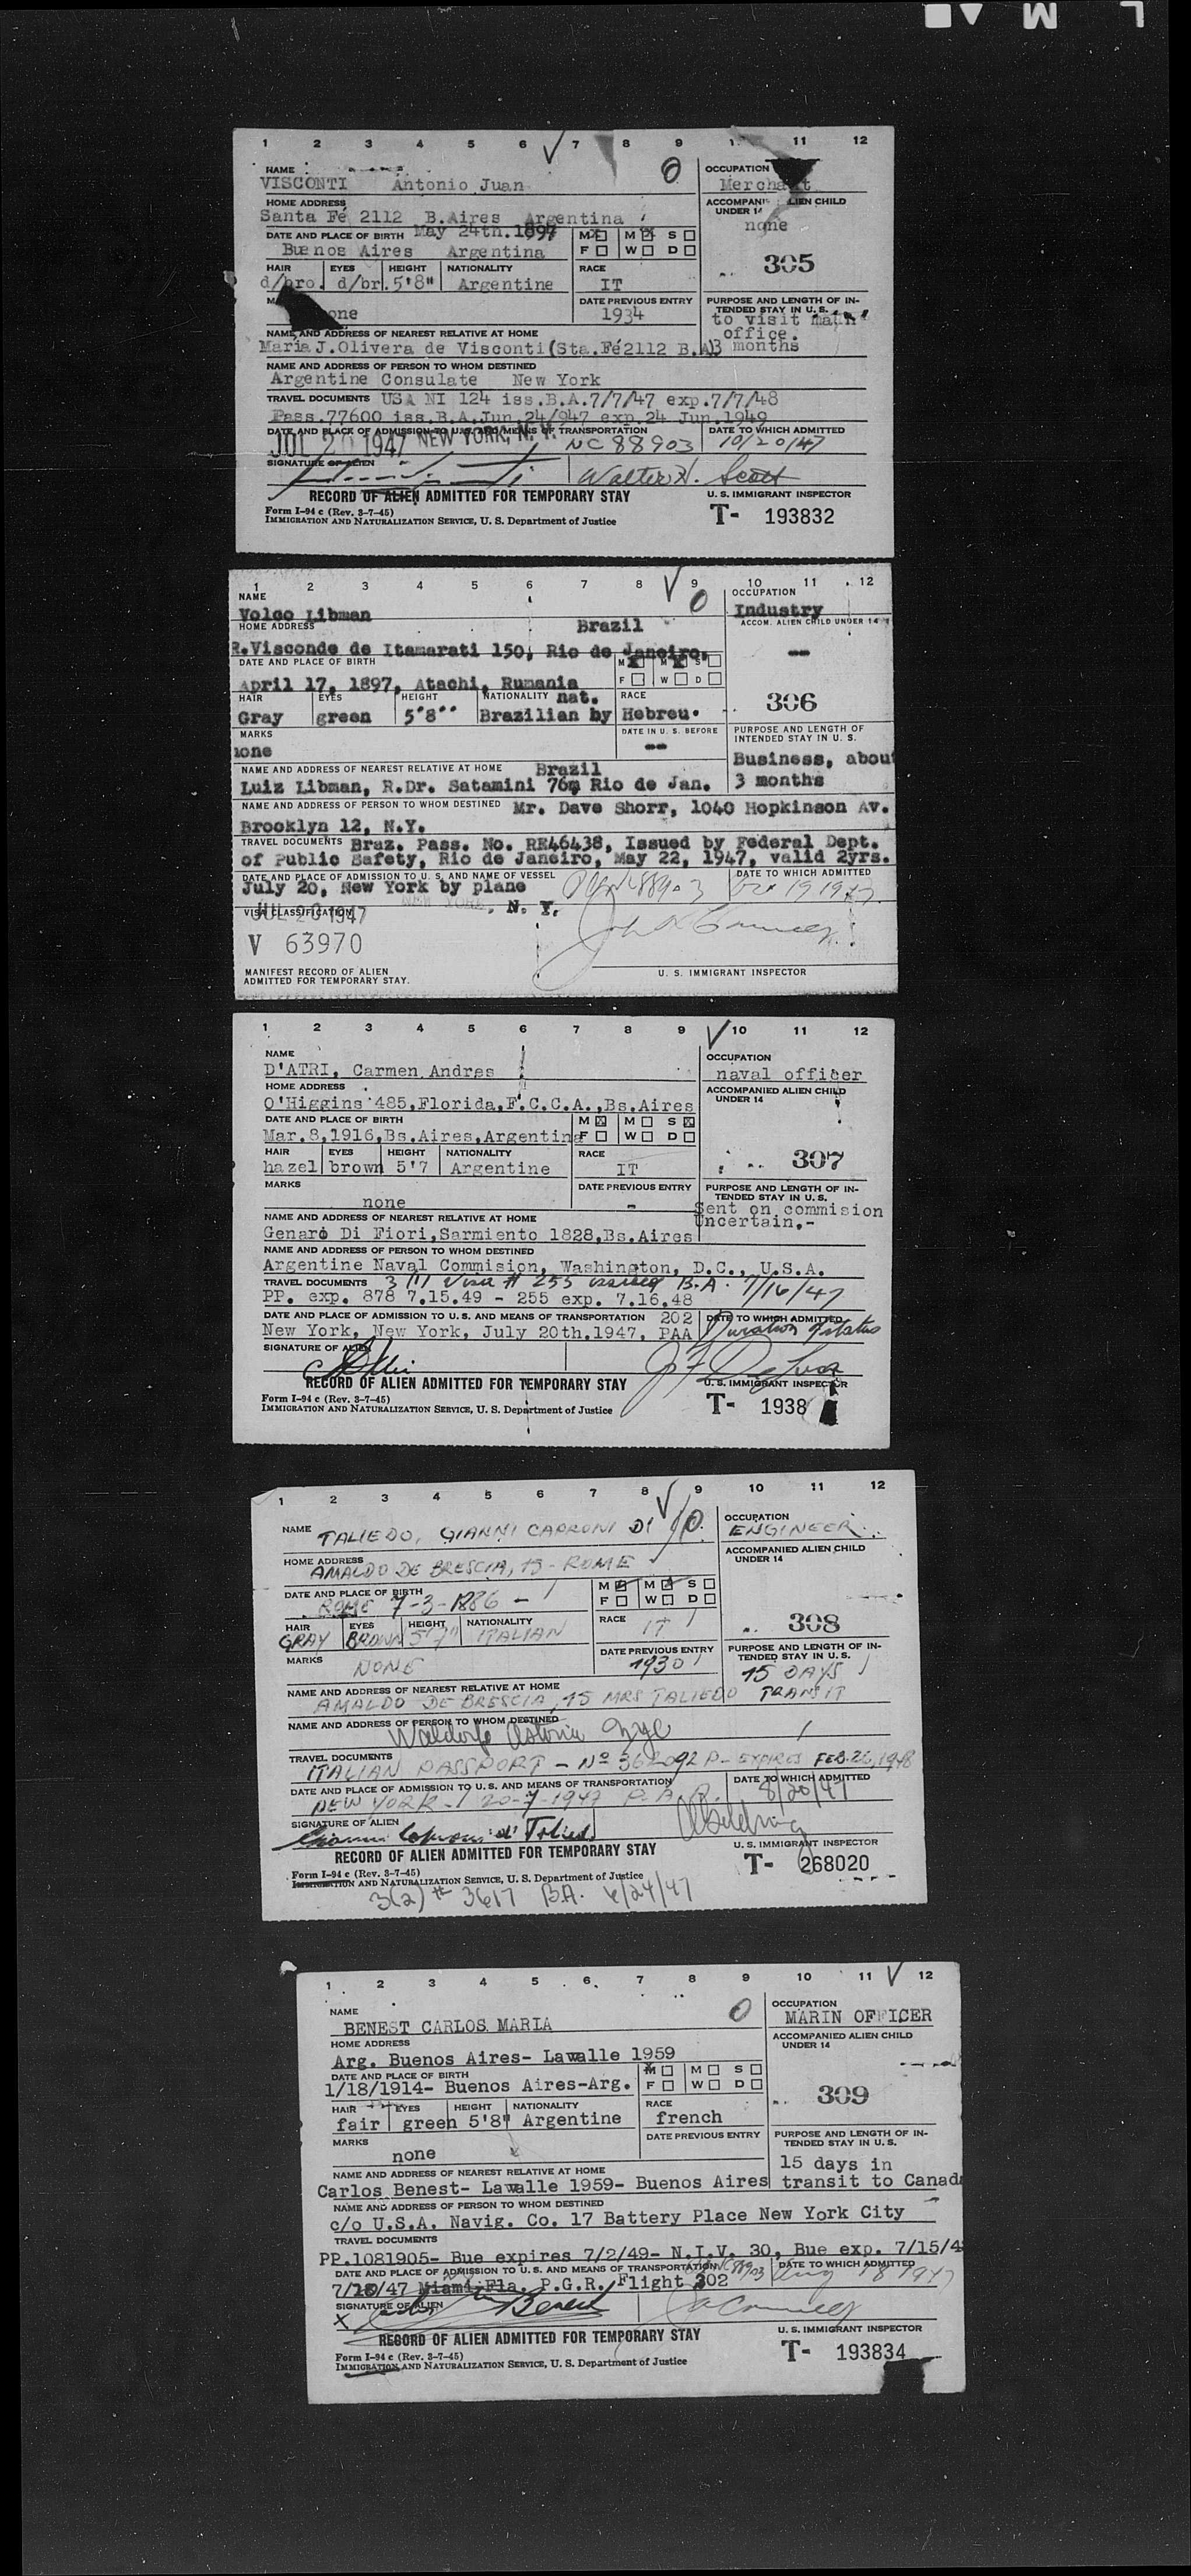 L M
1 2 3 4 5 6 7 8 9 11 12
NAME
VISCONTI Antonio Juan
O
OCCUPATION
Merchant
HOME ADDRESS
Santa Fé 2112 B.Aires Argentina
ACCOMPANIED ALIEN CHILD
UNDER 14
none
DATE AND PLACE OF BIRTH May 24th.1897
Buenos Aires Argentina
M M S
F W D
305
HAIR EYES HEIGHT NATIONALITY RACE
d/bro. d/br. 5'8" Argentine IT
DATE PREVIOUS ENTRY
1934
PURPOSE AND LENGTH OF IN-
TENDED STAY IN U. S.
to visit main
office.
3 months
NAME AND ADDRESS OF NEAREST RELATIVE AT HOME
Maria J.Olivera de Visconti(Sta.Fé2112 B.A)
NAME AND ADDRESS OF PERSON TO WHOM DESTINED
Argentine Consulate New York
TRAVEL DOCUMENTS USA NI 124 iss.B.A.7/7/47 exp.7/7/48
Pass.77600 iss.B.A.Jun.24/947 exp.24 Jun.1949
DATE AND PLACE OF ADMISSION TO U.S. AND MEANS OF TRANSPORTATION
JUL 20 1947 NEW YORK, N. Y. NC 88903
DATE TO WHICH ADMITTED
10/20/47
SIGNATURE OF ALIEN
Walter H. Scott
RECORD OF ALIEN ADMITTED FOR TEMPORARY STAY
U. S. IMMIGRANT INSPECTOR
Form I-94 c (Rev. 3-7-45)
IMMIGRATION AND NATURALIZATION SERVICE, U. S. Department of Justice
T- 193832
1 2 3 4 5 6 7 8 9 10 11 12
NAME
Volco Libman
O
OCCUPATION
Industry
HOME ADDRESS
Brazil
R.Visconde de Itamarati 150, Rio de Janeiro,
ACCOM. ALIEN CHILD UNDER 14
--
DATE AND PLACE OF BIRTH
April 17, 1897, Atachi, Rumania
M M S
F W D
306
HAIR EYES HEIGHT NATIONALITY nat. RACE
Gray green 5'8'' Brazilian by Hebreu.
MARKS
none
DATE IN U. S. BEFORE
--
PURPOSE AND LENGTH OF
INTENDED STAY IN U. S.
Business, about
3 months
NAME AND ADDRESS OF NEAREST RELATIVE AT HOME Brazil
Luiz Libman, R.Dr. Satamini 76, Rio de Jan.
NAME AND ADDRESS OF PERSON TO WHOM DESTINED Mr. Dave Shorr, 1040 Hopkinson Av.
Brooklyn 12, N.Y.
TRAVEL DOCUMENTS Braz. Pass. No. RE46438, Issued by Federal Dept.
of Public Safety, Rio de Janeiro, May 22, 1947, valid 2yrs.
DATE AND PLACE OF ADMISSION TO U. S. AND NAME OF VESSEL
July 20, New York by plane
DATE TO WHICH ADMITTED
VISA CLASSIFICATION
JUL 20 1947 NEW YORK, N. Y.
V 63970
MANIFEST RECORD OF ALIEN
ADMITTED FOR TEMPORARY STAY.
U. S. IMMIGRANT INSPECTOR
1 2 3 4 5 6 7 8 9 10 11 12
NAME
D'ATRI, Carmen Andres
OCCUPATION
naval officer
HOME ADDRESS
O'Higgins 485,Florida,F.C.C.A.,Bs.Aires
ACCOMPANIED ALIEN CHILD
UNDER 14
DATE AND PLACE OF BIRTH
Mar.8,1916,Bs.Aires,Argentina
M M S
F W D
307
HAIR EYES HEIGHT NATIONALITY RACE
hazel brown 5'7 Argentine IT
MARKS
none
DATE PREVIOUS ENTRY
-
PURPOSE AND LENGTH OF IN-
TENDED STAY IN U. S.
Sent on commision
Uncertain,-
NAME AND ADDRESS OF NEAREST RELATIVE AT HOME
Genaro Di Fiori,Sarmiento 1828,Bs.Aires
NAME AND ADDRESS OF PERSON TO WHOM DESTINED
Argentine Naval Commision, Washington, D.C., U.S.A.
TRAVEL DOCUMENTS 3 (1) Visa # 255 issued B.A. 7/16/47
PP. exp. 878 7.15.49 - 255 exp. 7.16.48
DATE AND PLACE OF ADMISSION TO U. S. AND MEANS OF TRANSPORTATION 202
New York, New York, July 20th.1947, PAA
DATE TO WHICH ADMITTED
Duration of status
SIGNATURE OF ALIEN
RECORD OF ALIEN ADMITTED FOR TEMPORARY STAY
U. S. IMMIGRANT INSPECTOR
Form I-94 c (Rev. 3-7-45)
IMMIGRATION AND NATURALIZATION SERVICE, U. S. Department of Justice
T- 1938
1 2 3 4 5 6 7 8 9 10 11 12
NAME TALIEDO, GIANNI CAPRONI DI
O
OCCUPATION
ENGINEER
HOME ADDRESS
AMALDO DE BRESCIA, 15 - ROME
ACCOMPANIED ALIEN CHILD
UNDER 14
DATE AND PLACE OF BIRTH
ROME 7-3-1886 -
M M S
F W D
308
HAIR EYES HEIGHT NATIONALITY RACE
GRAY BROWN 5'7" ITALIAN IT
MARKS
NONE
DATE PREVIOUS ENTRY
1930
PURPOSE AND LENGTH OF IN-
TENDED STAY IN U. S.
15 DAYS
TRANSIT
NAME AND ADDRESS OF NEAREST RELATIVE AT HOME
AMALDO DE BRESCIA, 15 MRS TALIEDO
NAME AND ADDRESS OF PERSON TO WHOM DESTINED
Waldorf Astoria NYC
TRAVEL DOCUMENTS
ITALIAN PASSPORT - No 362092 P- EXPIRES FEB.26,1948
DATE AND PLACE OF ADMISSION TO U. S. AND MEANS OF TRANSPORTATION
NEW YORK - 20-7-1947 P.A.A.
DATE TO WHICH ADMITTED
8/20/47
SIGNATURE OF ALIEN
Gianni Caproni di Taliedo
RECORD OF ALIEN ADMITTED FOR TEMPORARY STAY
U. S. IMMIGRANT INSPECTOR
Form I-94 c (Rev. 3-7-45)
IMMIGRATION AND NATURALIZATION SERVICE, U. S. Department of Justice
T- 268020
3(2) # 3617 B.A. 6/24/47
1 2 3 4 5 6 7 8 9 10 11 12
NAME
BENEST CARLOS MARIA
O
OCCUPATION
MARIN OFFICER
HOME ADDRESS
Arg. Buenos Aires- Lavalle 1959
ACCOMPANIED ALIEN CHILD
UNDER 14
DATE AND PLACE OF BIRTH
1/18/1914- Buenos Aires-Arg.
M M S
F W D
309
HAIR EYES HEIGHT NATIONALITY RACE
fair green 5'8" Argentine french
MARKS
none
DATE PREVIOUS ENTRY
PURPOSE AND LENGTH OF IN-
TENDED STAY IN U. S.
15 days in
transit to Canada
NAME AND ADDRESS OF NEAREST RELATIVE AT HOME
Carlos Benest- Lavalle 1959- Buenos Aires
NAME AND ADDRESS OF PERSON TO WHOM DESTINED
c/o U.S.A. Navig. Co. 17 Battery Place New York City
TRAVEL DOCUMENTS
PP.1081905- Bue expires 7/2/49- N.I.V. 30, Bue exp. 7/15/48
DATE AND PLACE OF ADMISSION TO U. S. AND MEANS OF TRANSPORTATION
7/20/47 Miami Fla. P.G.R. Flight 202
DATE TO WHICH ADMITTED
Aug 18 1947
SIGNATURE OF ALIEN
X Benest
RECORD OF ALIEN ADMITTED FOR TEMPORARY STAY
U. S. IMMIGRANT INSPECTOR
Form I-94 c (Rev. 3-7-45)
IMMIGRATION AND NATURALIZATION SERVICE, U. S. Department of Justice
T- 193834